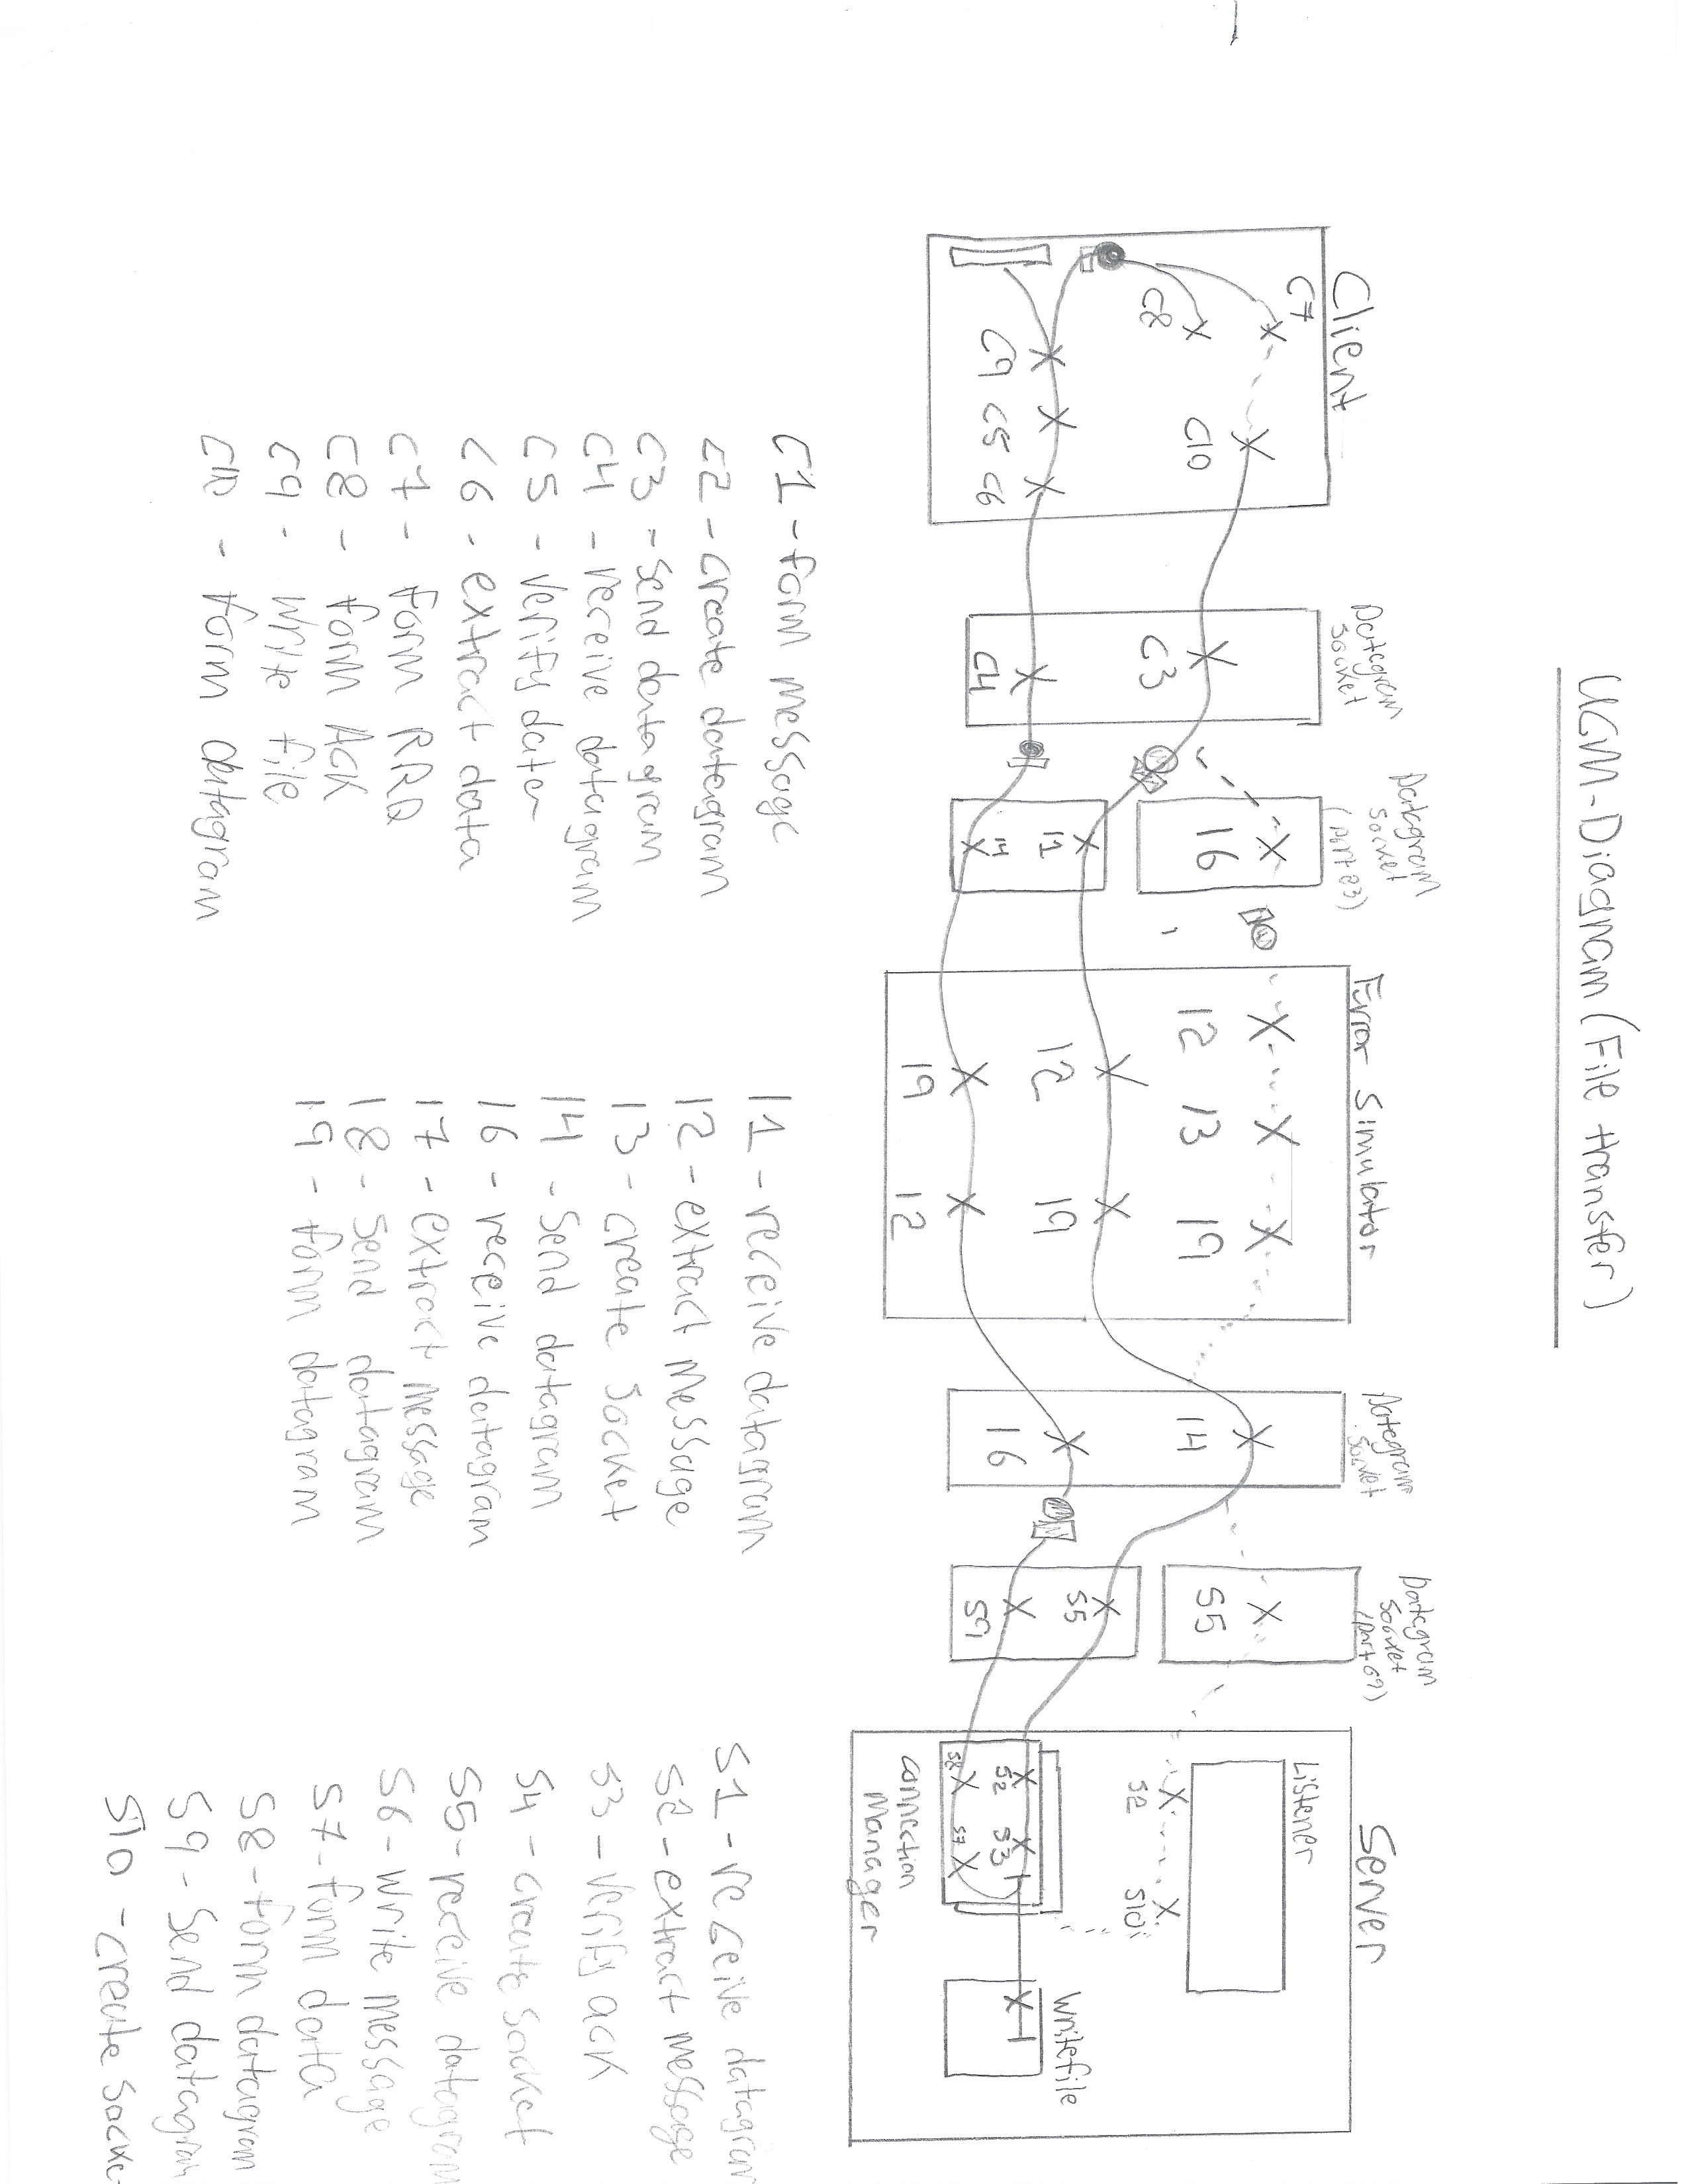 UCM-Diagram (File transfer)
Client
Datagram
Socket
Datagram
Socket
(port 23)
Error Simulator
Datagram
Socket
Datagram
Socket
(port 69)
Server
Listener
C7
C10
C8
C3
16
12
13
19
14
S5
S2
S10
11
12
19
S5
Writefile
C9
C5
C6
C4
14
19
12
16
S9
S2
S3
S8
S7
Connection
Manager
C1 - form message
C2 - create datagram
C3 - Send datagram
C4 - receive datagram
C5 - Verify data
C6 - extract data
C7 - form RRQ
C8 - form ACK
C9 - Write file
C10 - form datagram
11 - receive datagram
12 - extract message
13 - create socket
14 - Send datagram
16 - receive datagram
17 - extract message
18 - Send datagram
19 - form datagram
S1 - receive datagram
S2 - extract message
S3 - Verify ack
S4 - create socket
S5 - receive datagram
S6 - Write message
S7 - form data
S8 - form datagram
S9 - Send datagram
S10 - create socke